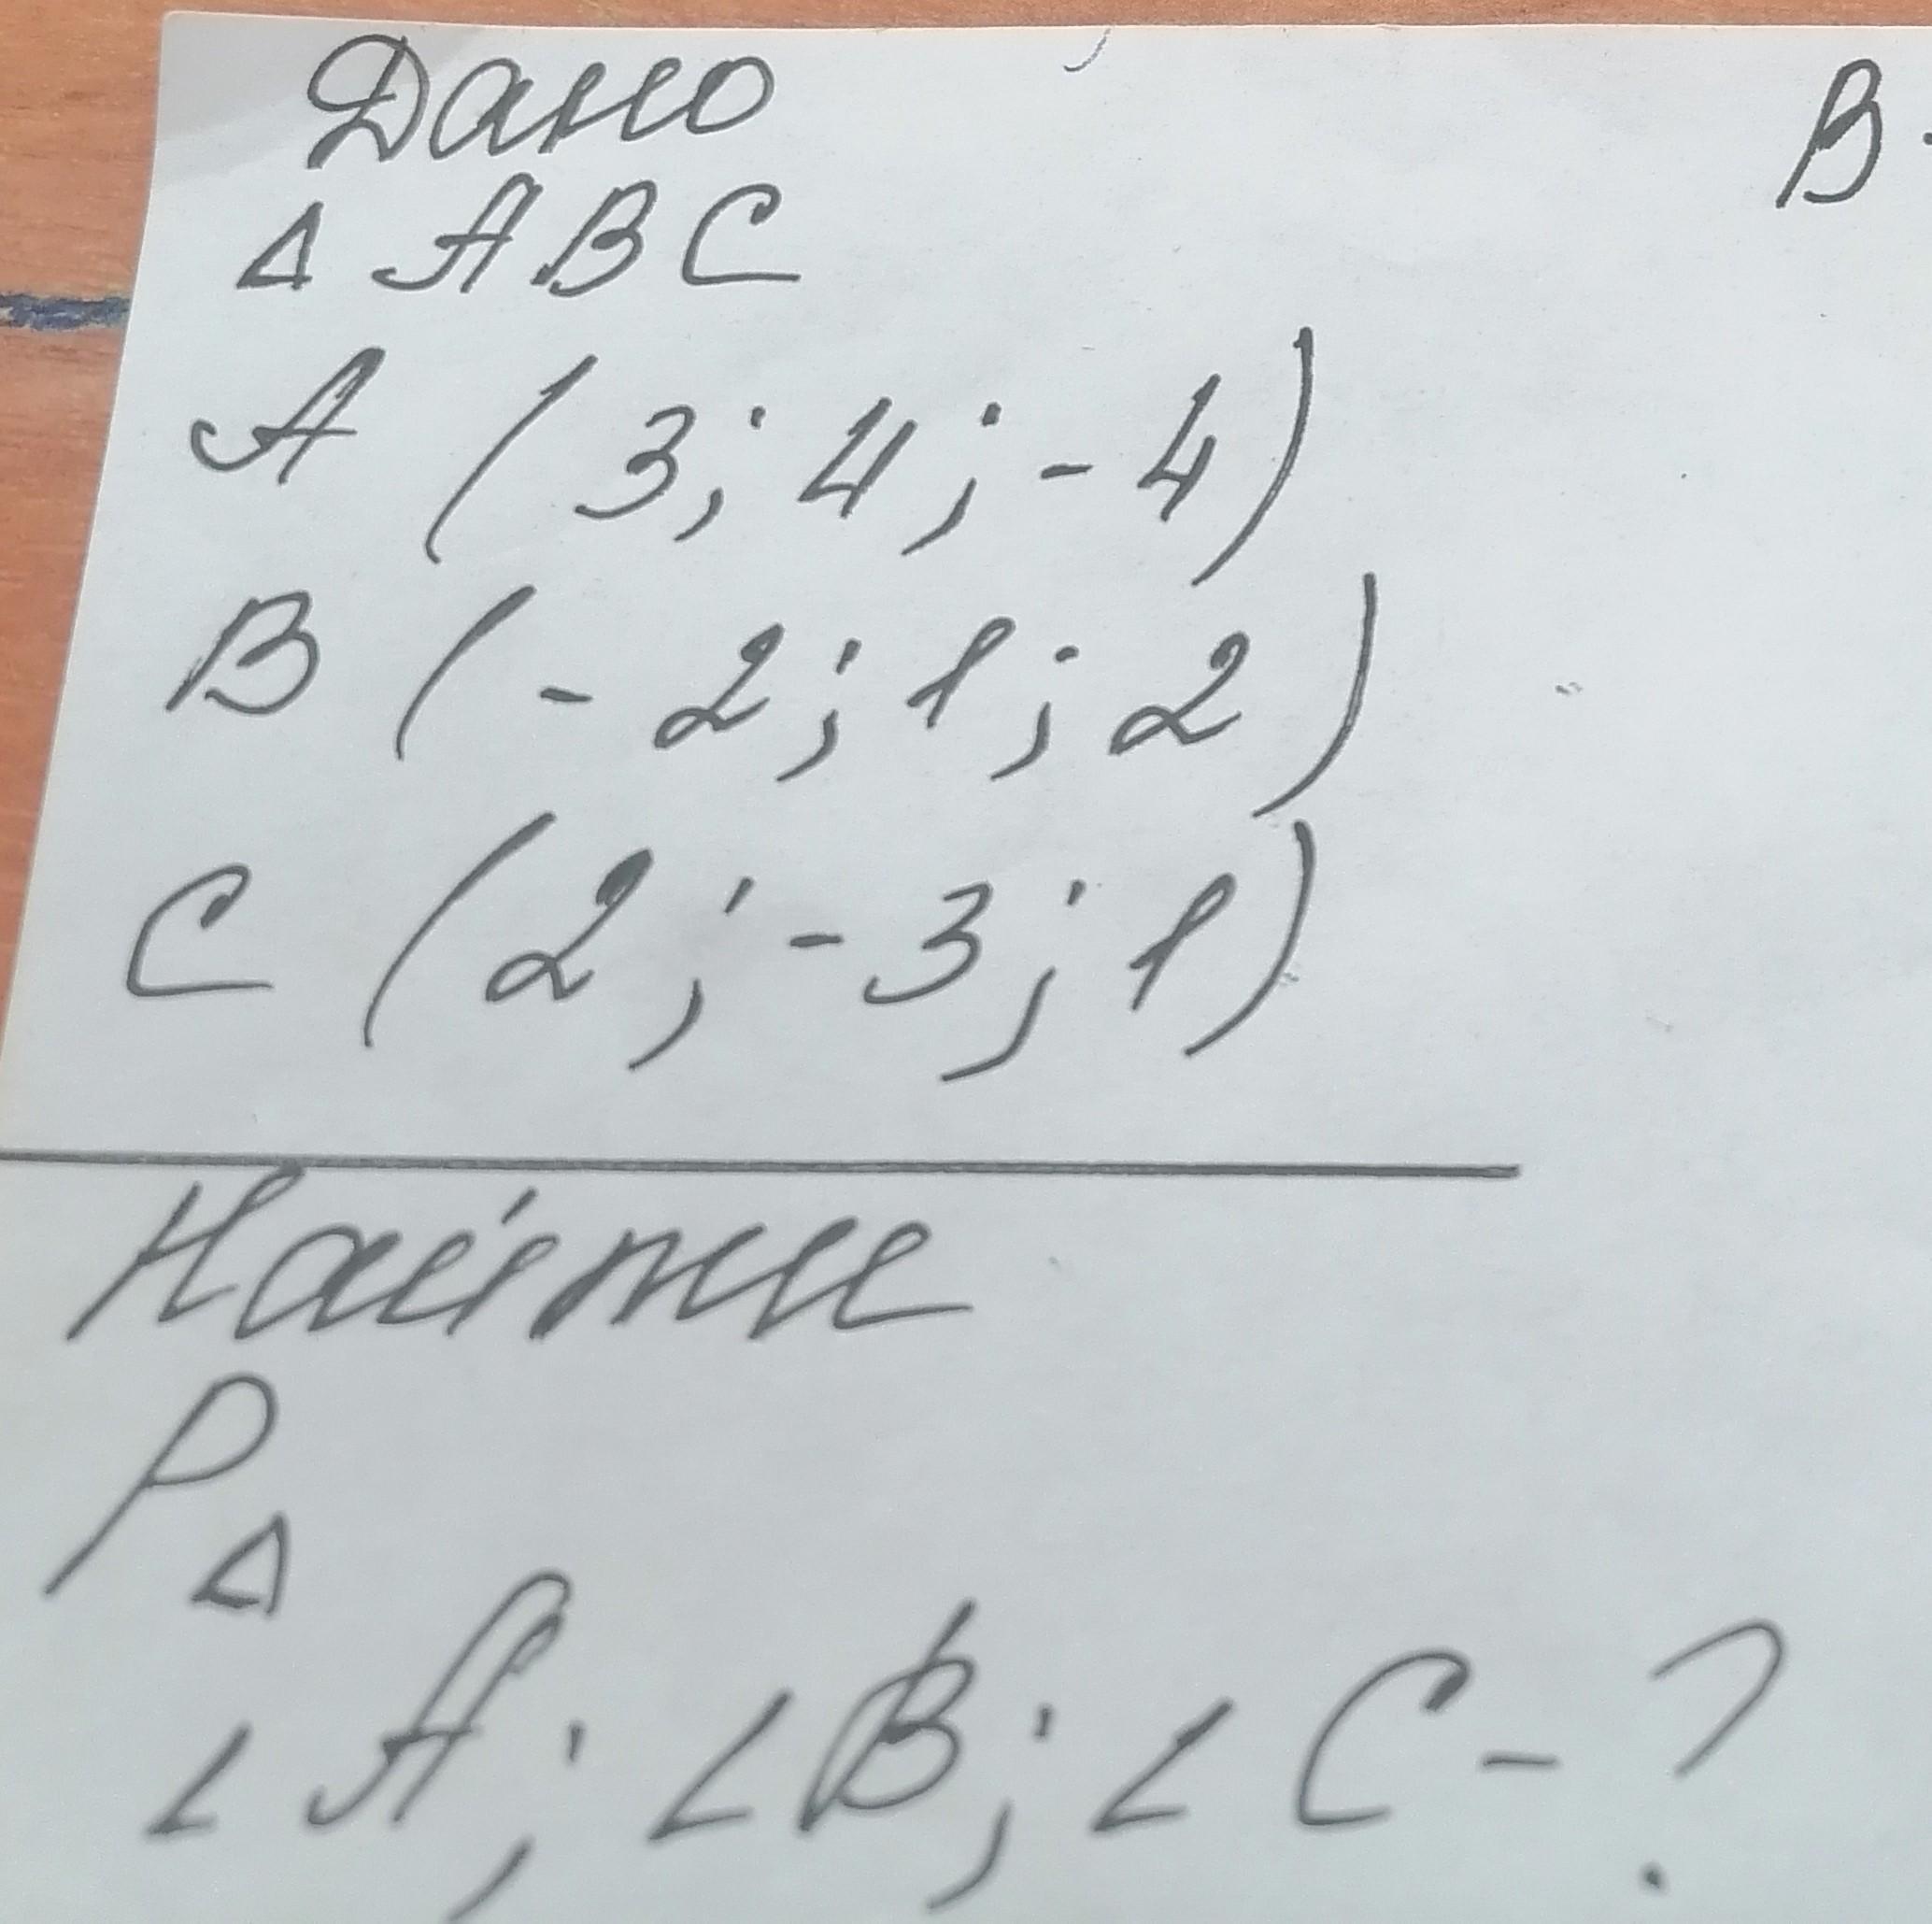 Дано
B
Δ ABC
A (3; 4; -4)
B (-2; 1; 2)
C (2; -3; 1)
Найти
P Δ
∠A; ∠B; ∠C - ?